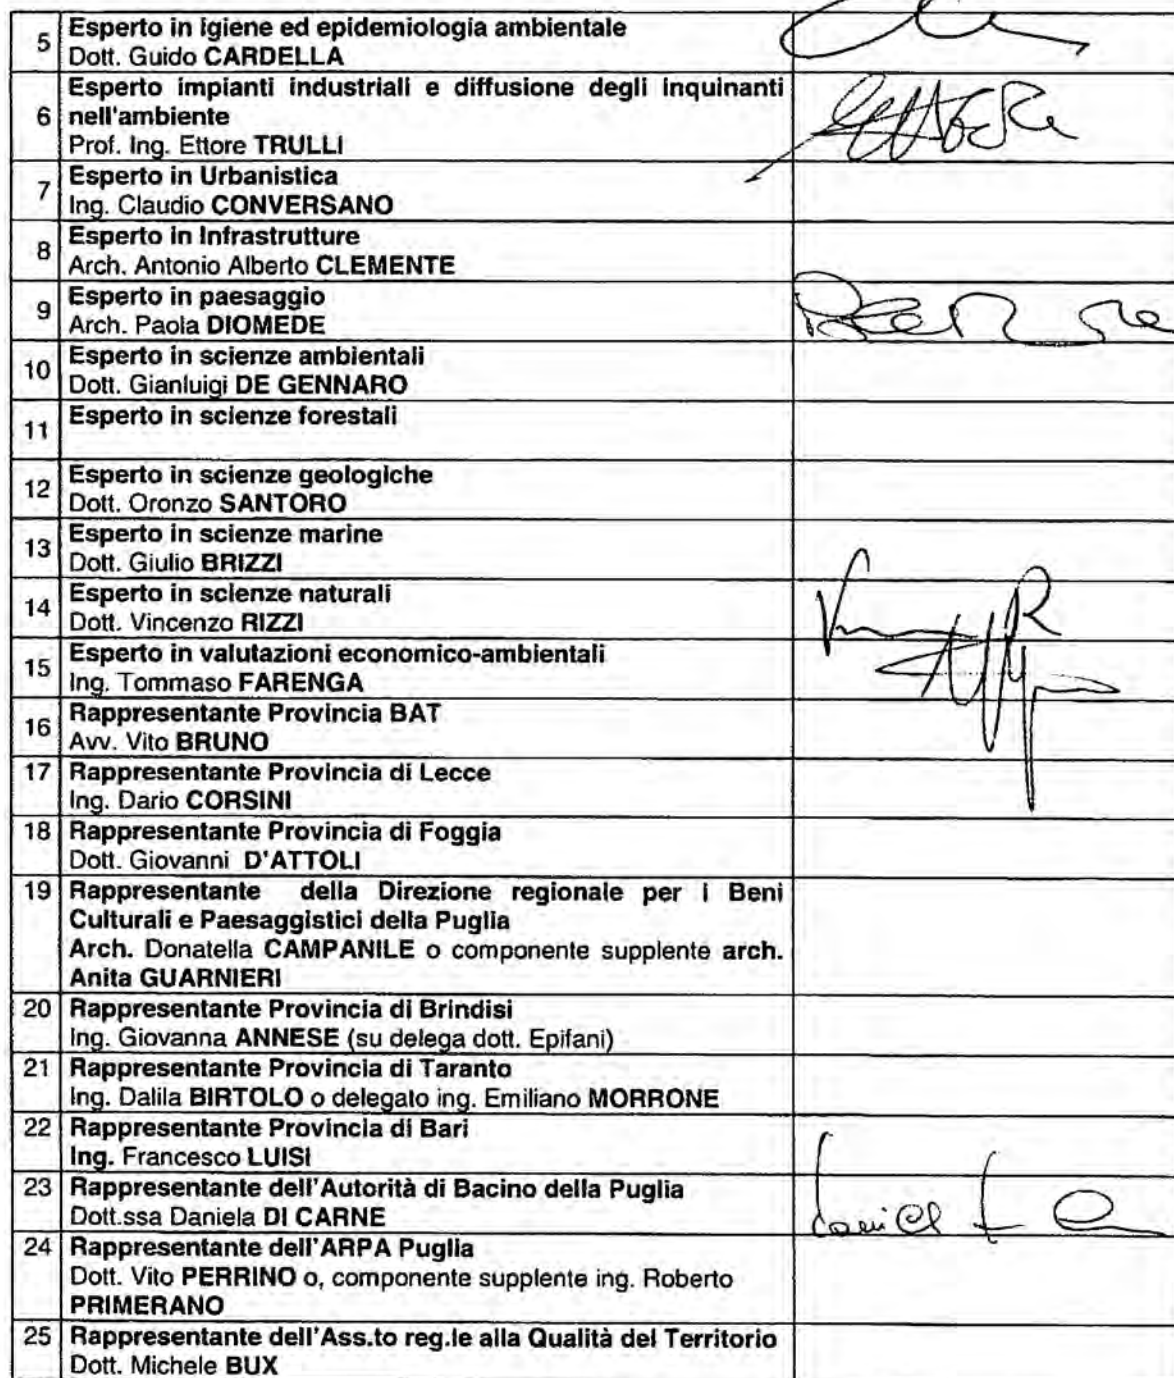 5 Esperto in igiene ed epidemiologia ambientale
Dott. Guido CARDELLA
6 Esperto impianti industriali e diffusione degli inquinanti
nell'ambiente
Prof. Ing. Ettore TRULLI
7 Esperto in Urbanistica
Ing. Claudio CONVERSANO
8 Esperto in Infrastrutture
Arch. Antonio Alberto CLEMENTE
9 Esperto in paesaggio
Arch. Paola DIOMEDE
10 Esperto in scienze ambientali
Dott. Gianluigi DE GENNARO
11 Esperto in scienze forestali
12 Esperto in scienze geologiche
Dott. Oronzo SANTORO
13 Esperto in scienze marine
Dott. Giulio BRIZZI
14 Esperto in scienze naturali
Dott. Vincenzo RIZZI
15 Esperto in valutazioni economico-ambientali
Ing. Tommaso FARENGA
16 Rappresentante Provincia BAT
Avv. Vito BRUNO
17 Rappresentante Provincia di Lecce
Ing. Dario CORSINI
18 Rappresentante Provincia di Foggia
Dott. Giovanni D'ATTOLI
19 Rappresentante della Direzione regionale per i Beni
Culturali e Paesaggistici della Puglia
Arch. Donatella CAMPANILE o componente supplente arch.
Anita GUARNIERI
20 Rappresentante Provincia di Brindisi
Ing. Giovanna ANNESE (su delega dott. Epifani)
21 Rappresentante Provincia di Taranto
Ing. Dalila BIRTOLO o delegato ing. Emiliano MORRONE
22 Rappresentante Provincia di Bari
Ing. Francesco LUISI
23 Rappresentante dell'Autorità di Bacino della Puglia
Dott.ssa Daniela DI CARNE
24 Rappresentante dell'ARPA Puglia
Dott. Vito PERRINO o, componente supplente ing. Roberto
PRIMERANO
25 Rappresentante dell'Ass.to reg.le alla Qualità del Territorio
Dott. Michele BUX